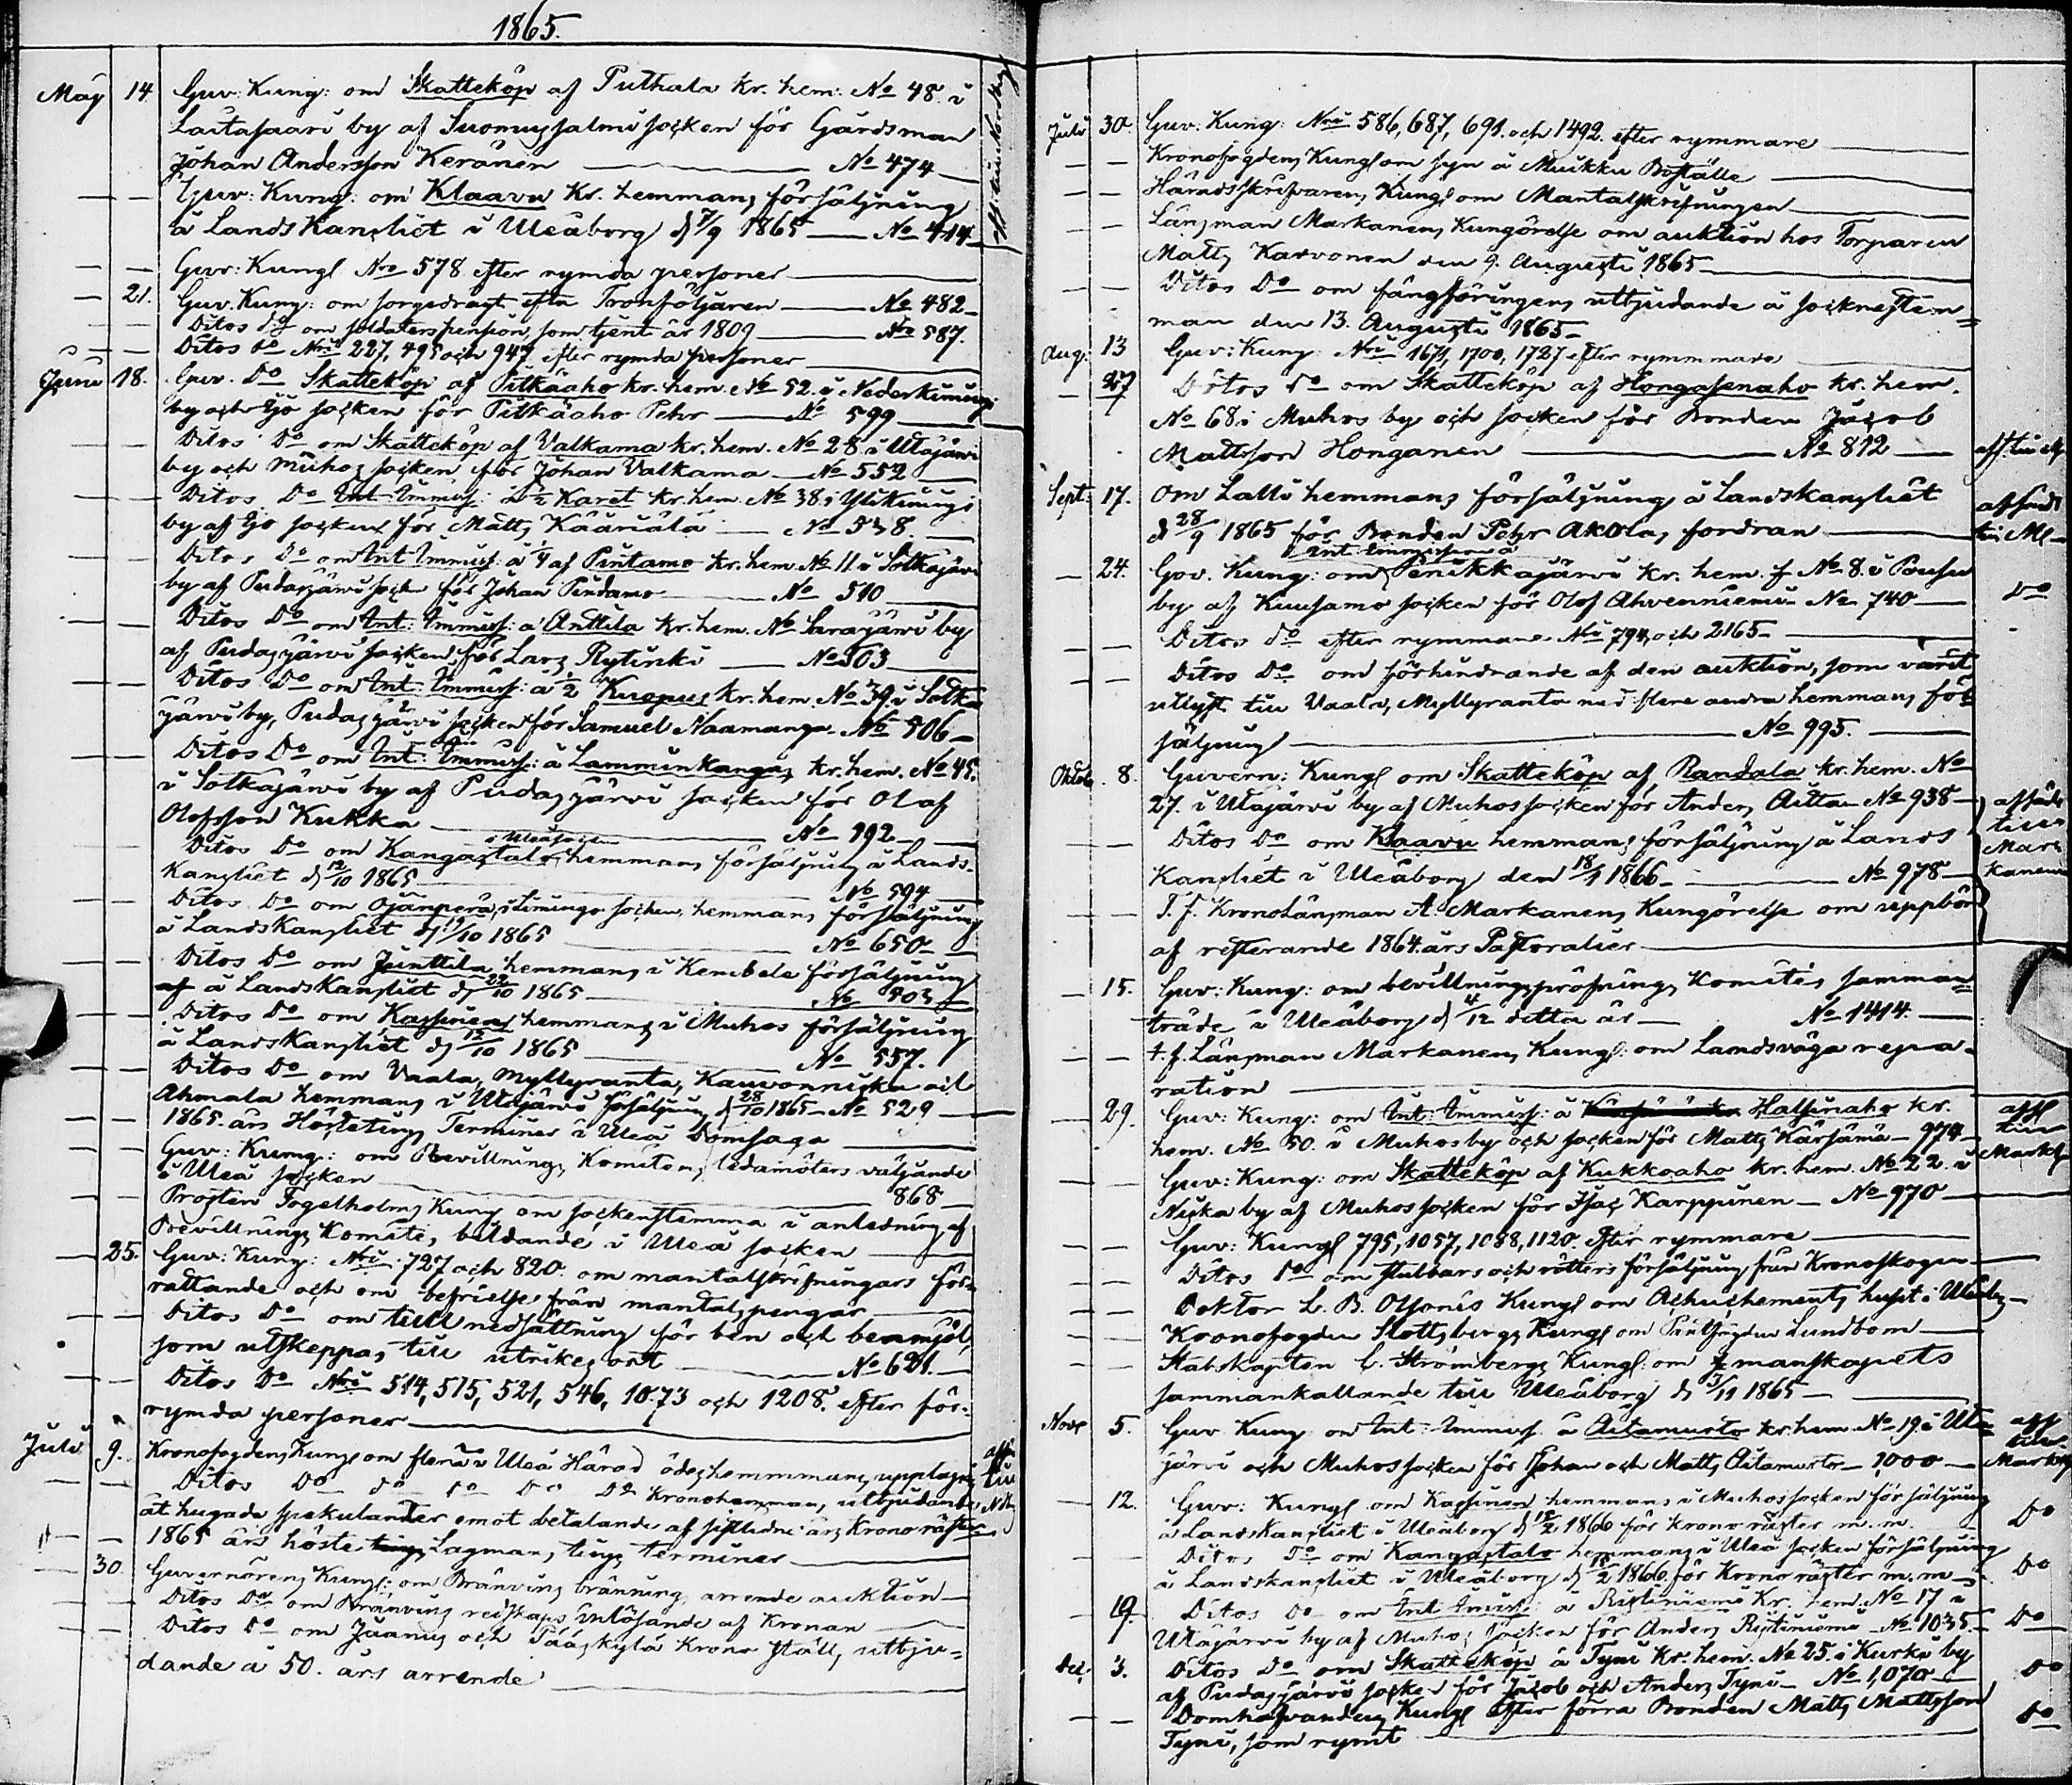 1865.
May 14. Guv: Kung: om Skatteköp af Puthala kr. hem. No 48. i
Laitasaari by af Suomusjalmi socken för Gårdsman
Johan Andersson Keränen No 474
Guv: Kung: om Klaavu Kr. hemmans försäljning
å LandsKansliet i Uleåborg d 7/9 1865 No 414
Guv: Kungl No 578 efter rymda personer
21. Guv. Kung: om sorgedragt efter Tronföljaren No 482
Ditos do om soldaterspension, som tjent år 1809 No 587.
Ditos do Nris 227, 495 och 947 efter rymda personer
Juni 18. Guv. Do Skatteköp af Pitkäaho kr. hem. No 52. i Nederkiiminge
by och Ijo socken för Pitkäaho Pehr No 599
Ditos Do om Skatteköp af Valkama kr. hem. No 28 i Utajärvi
by och Muhos socken för Johan Valkama No 552
Ditos Do Int Immiss: å 1/2 Karet kr. hem. No 38 i Ylikiiminge
by af Ijo socken för Matts Kääriälä No 538
Ditos Do om Int Immiss: å 1/4 af Pintamo kr. hem. No 11 i Sotkajärvi
by af Pudasjärvi socken för Johan Pindamo No 510
Ditos Do om Int: Immiss: å Anttila kr. hem. No Sarajärvi by
af Pudasjärvi socken för Lars Rytinki No 503
Ditos Do om Int: Immiss: å 1/2 Kuopus kr. hem. No 39. i Sotka
järvi by, Pudasjärvi socken för Samuel Naamanga No 506
Ditos Do om Int: Immiss: å Lamminkangas kr. hem. No 45.
i Sotkajärvi by af Pudasjärvi socken för Olof
Olofsson Kukka No 992
Ditos Do om Kangastalo i Uleå socken hemmans försäljning å Lands-
Kansliet d 12/10 1865 No 594
Ditos Do om Ojanperä, i Limingo socken, hemmans försäljning
å Landskansliet d /10 1865 No 650
Ditos Do om Junttila hemmans i Kembele försäljning
af å Landskansliet d 22/10 1865 No 503
Ditos Do om Kassinen hemmans i Muhos försäljning
å Landskansliet d 12/10 1865 No 557.
Ditos Do om Vaala, Myllyranta, Kauvonniska och
Ahmala hemmans i Utajärvi försäljning d 28/10 1865 No 529
1865. års Höstetings Terminer i Uleå Domsaga
Guv: Kung: om Bevillnings Komitens ledamöters väljande
i Uleå socken 868
Prosten Fogelholms Kung om sockenstemma i anledning af
Bevillnings Komités bildande i Uleå socken
25. Guv: Kung: Nris 727 och 820. om mantalskrifningars för-
rättande och om befrielse från mantalspengar
Ditos Do om tull nedsättning för ben och benmjöl,
som utskeppas till utrikes ort No 621.
Ditos Do Nris 514, 515, 521, 546, 1073 och 1208. efter för-
rymda personer
Juli 9. Kronofogdens Kung om flera i Uleå Härad ödes hemmans upptagn.
Ditos Do do do Do Do Kronohemman, utbjudande
åt hugade spekulanter emot betalande af
1865 års höste Lagmans tings terminer
30 Guvernörens Kung: om Bränvins bränning arrende auktion
Ditos Do om Bränvins redskaps inlösande af Kronan
Ditos Do om Juanis och Pääskylä Krono ställ, utbju-
dande å 50. års arrende
Juli 30. Guv. Kung: Nris 586, 687, 691. och 1492. efter rymmare
Kronofogdens Kungl om syn å Muikku Boställe
Häradsskrifvarens Kungl om Mantalskrifningen
Länsman Markanens Kungörelse om auktion hos Torparen
Matts Karvonen den 9. Augusti 1865
Ditos Do om fångföringens utbjudande å sockenstem-
man den 13. Augusti 1865
Aug: 13 Guv: Kung: Nris 1671, 1700, 1727 efter rymmare
27 Ditos Do om Skatteköp af Hongasenaho kr. hem.
No 68. i Muhos by och socken för Bonden Jacob
Mattsson Honganen No 812
Sept: 17. Om Lalli hemmans försäljning å Landskansliet
d 28/9 1865 för Bonden Pehr Akolas fordran
24. Gov. Kung: om Int Immission å Penikkajärvi kr. hem. No 8. i Pousu
by af Kuusamo socken för Olof Ahvenniemi No 740 Do
Ditos do efter rymmare Nris 794, och 2165
Ditos Do om förhindrande af den auktion, som varit
utlyst till Vaala, Myllyranta med flere andra hemmans för-
säljning No 995.
Oktob. 8. Guvern: Kungl om Skatteköp af Randala kr. hem. No
27. i Utajärvi by af Muhos socken för Anders Aitta No 938
Ditos Do om Klaavu hemmans försäljning å Lands
Kansliet i Uleåborg den 18/1 1866 No 978
T. f. KronoLänsman A. Markanens Kungörelse om uppbörd
af resterande 1864. års Pastoralier
15. Guv: Kung: om bevillningspröfnings Komités samman-
träde i Uleåborg d 4/12 detta år No 1414.
t. f. Länsman Markanens Kungl: om Landsväga repa-
ration
29. Guv: Kung: om Int: Immiss: å Halsinaho kr.
hem. No 50. i Muhos by och socken för Matts Kärsämä 974
Guv: Kung: om Skatteköp af Kukkoaho kr. hem. No 22. i
Niska by af Muhos socken för Isac Karppinen No 970
Guv: Kungl 795, 1057, 1088, 1120. efter rymmare
Ditos Do om stubbars och rötters försäljning från Kronoskogen
Doktor L. B. Kungl om
Kronofogden Slottsbergs Kungl om Lundbom
Stabskapten C. Strömbergs Kungl: om manskapets
sammankallande till Uleåborg d /11 1865
Nov. 5. Guv Kung om Int: Immiss. å Aitamurto kr. hem No 19. i Uta-
järvi och Muhos socken för Johan och Matts Aitamurto 1000
12. Guv: Kungl om Kassinen hemmans i Muhos socken försäljning
å Landskansliet i Uleåborg d 15/2 1866 för kronoräster m. m. Do
Ditos Do om Kangastalo hemmans i Uleå socken försäljning
å Landskansliet i Uleåborg d 15/2 1866. för Krono räster m. m. Do
19. Ditos Do om Int Immiss: å Ristiniemi Kr. hem. No 17 i
Utajärvi by af Muhos socken för Anders Ristiniemi No 1035. Do
Dec. 3. Ditos Do om Skatteköp å Tyni Kr. hem. No 25. i Kurki by
af Pudasjärvi socken för Jacob och Anders Tyni No 1,070 Do
Domhafvandens Kungl efter förra Bonden Matts Mattsson
Tyni, som rymt Do